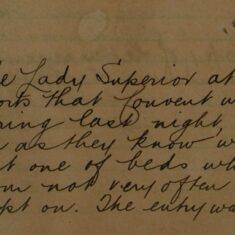 e Lady Superior at
orts that Convent w
ring last night,
as they know w
t one of beds wh
om not very often
ept on. The entry wa